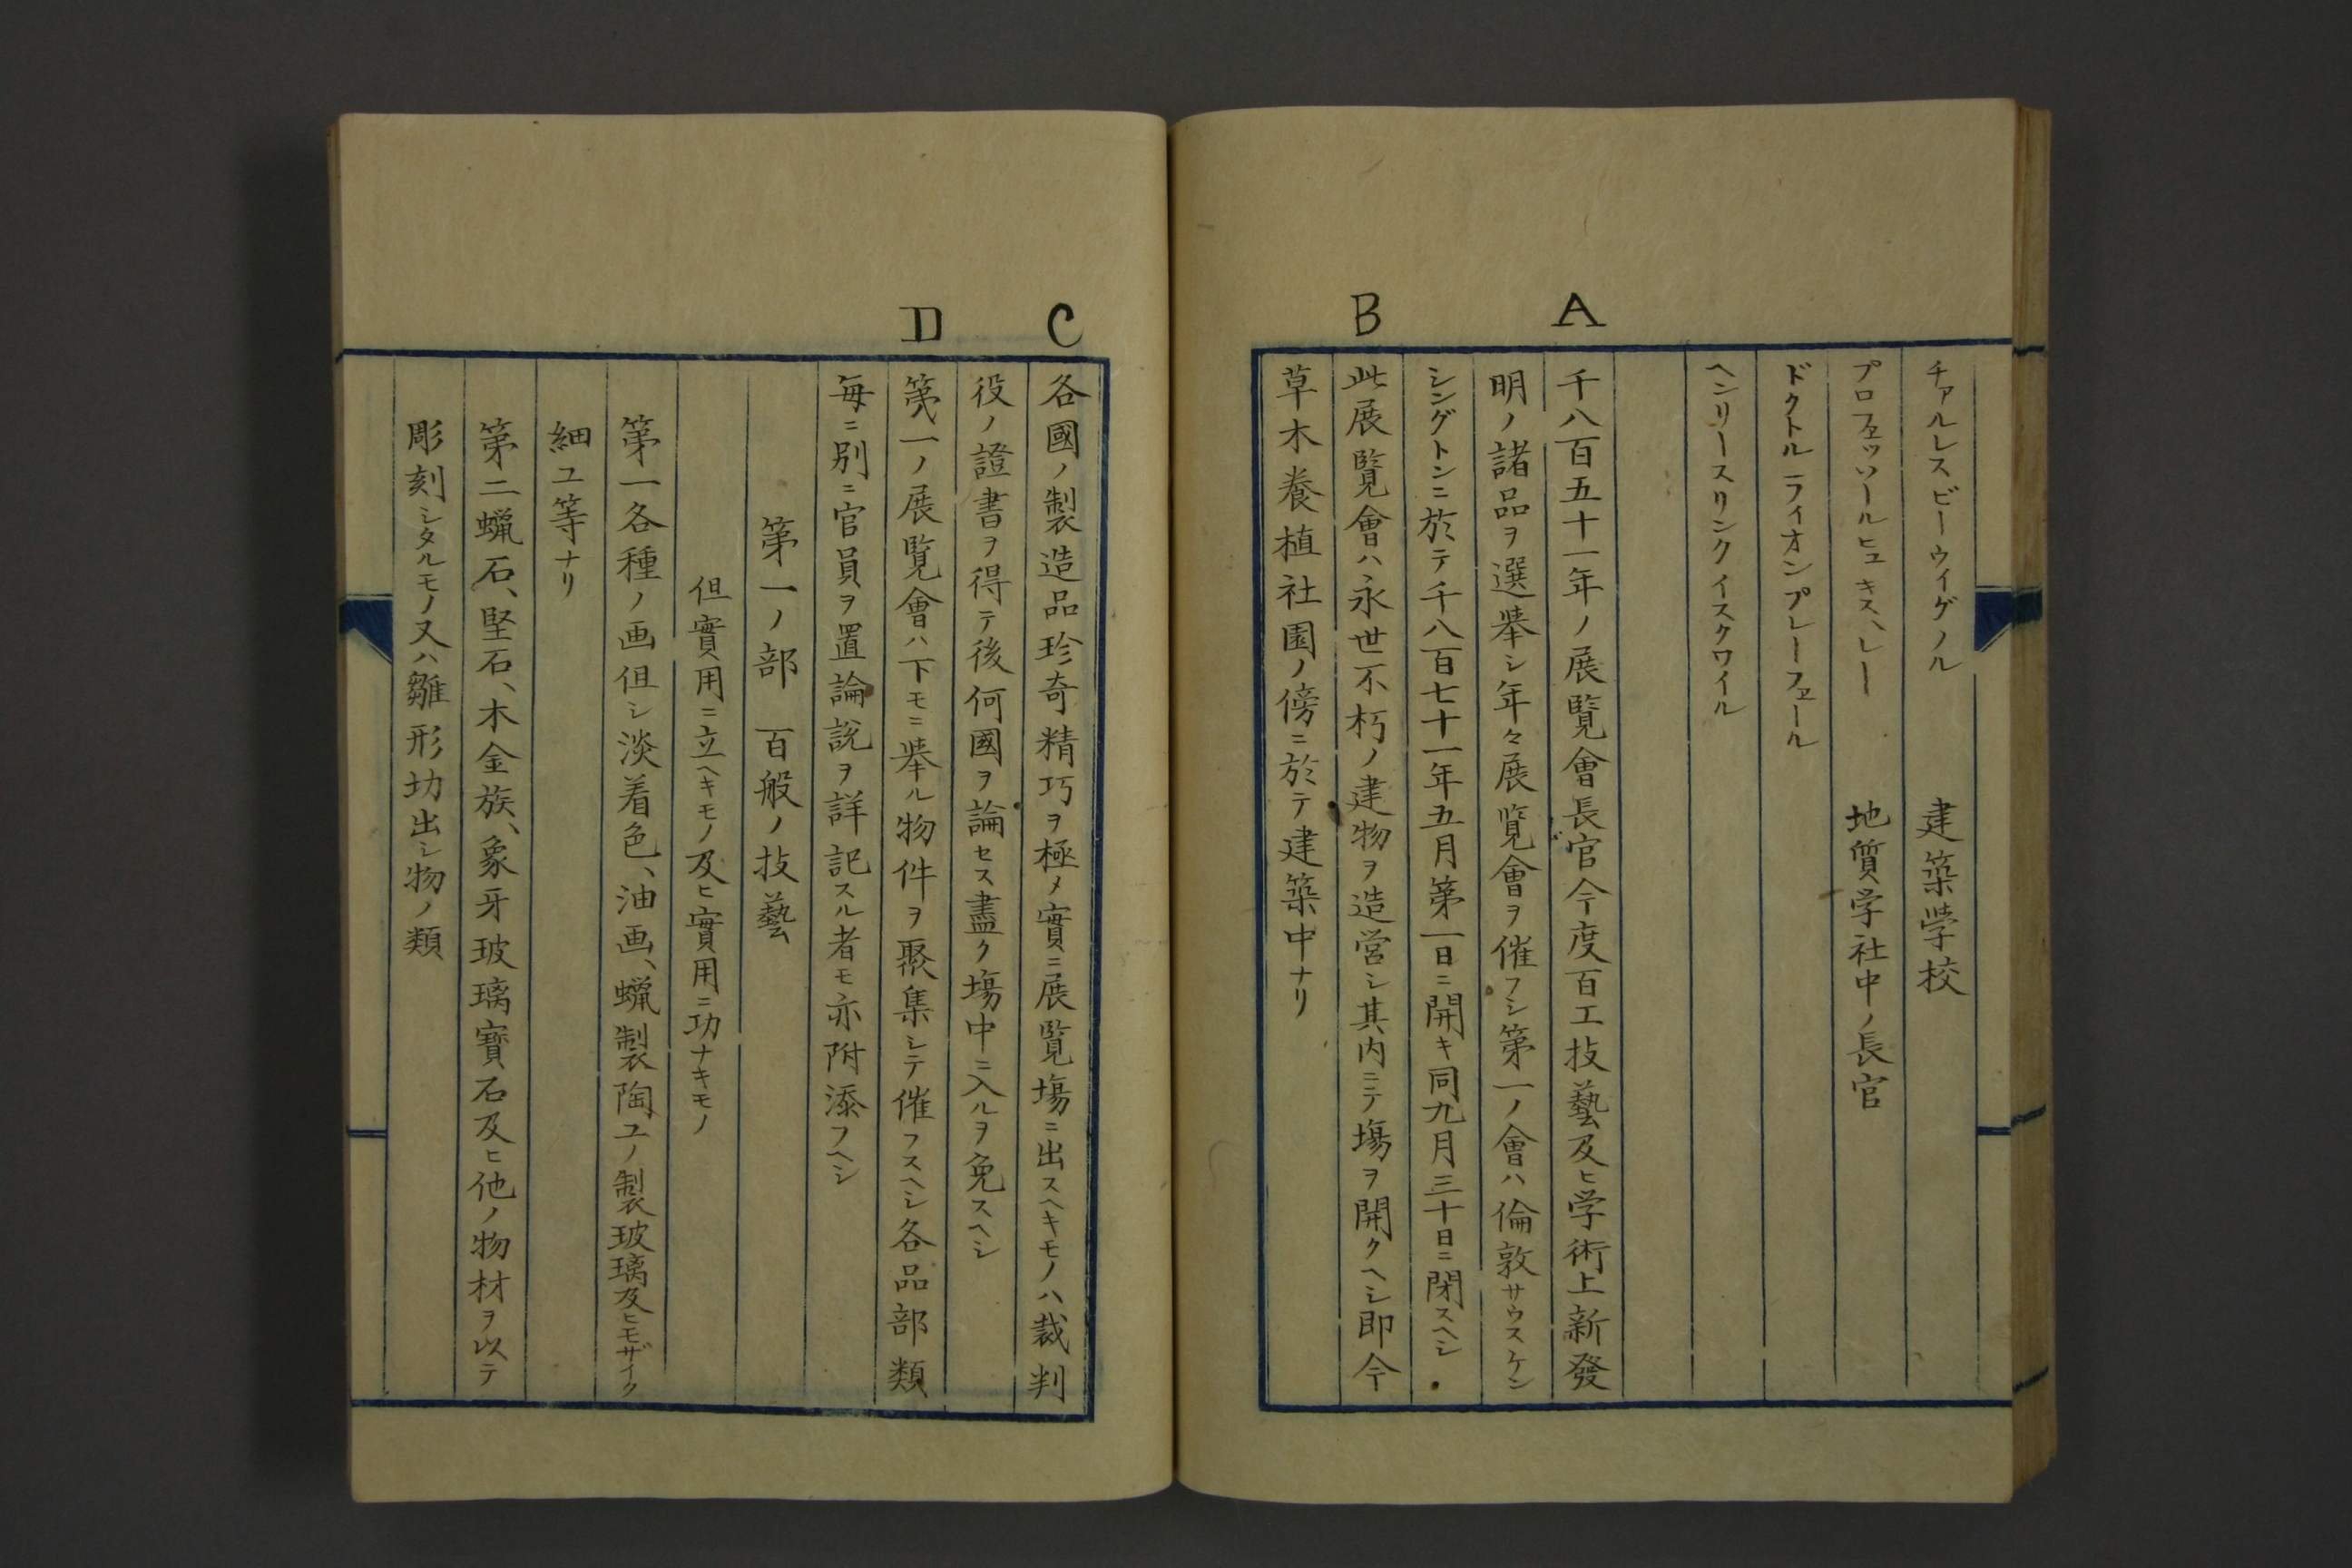 チァルレスビーウィグノル 建築学校
プロフェッソールヒュキスレー 地質学社中ノ長官
ドクトルライオンプレーフェール
ヘンリースリンクイスクワイル
A
千八百五十一年ノ展覧會長官今度百工技藝及ヒ学術上新發
明ノ諸品ヲ選挙シ年々展覧會ヲ催フシ第一ノ會ハ倫敦サウスケン
シングトンニ於テ千八百七十一年五月第一日ニ開キ同九月三十日ニ閉スヘシ
B
此展覧會ハ永世不朽ノ建物ヲ造営シ其内ニテ塲ヲ開クヘシ即今
草木養植社園ノ傍ニ於テ建築中ナリ
C
各國ノ製造品珍奇精巧ヲ極メ實ニ展覧塲ニ出スヘキモノハ裁判
役ノ證書ヲ得テ後何國ヲ論セス盡ク塲中ニ入ルヲ免スヘシ
D
第一ノ展覧會ハ下モニ挙ル物件ヲ聚集シテ催フスヘシ各品部類
毎ニ別ニ官員ヲ置論説ヲ詳記スル者モ亦附添フヘシ
第一ノ部 百般ノ技藝
但實用ニ立ヘキモノ及ヒ實用ニ功ナキモノ
第一各種ノ画但シ淡着色、油画、蝋製陶工ノ製玻璃及ヒモザイク
細工等ナリ
第二蝋石、堅石、木金族、象牙玻璃寶石及ヒ他ノ物材ヲ以テ
彫刻シタルモノ又ハ雛形功出シ物ノ類